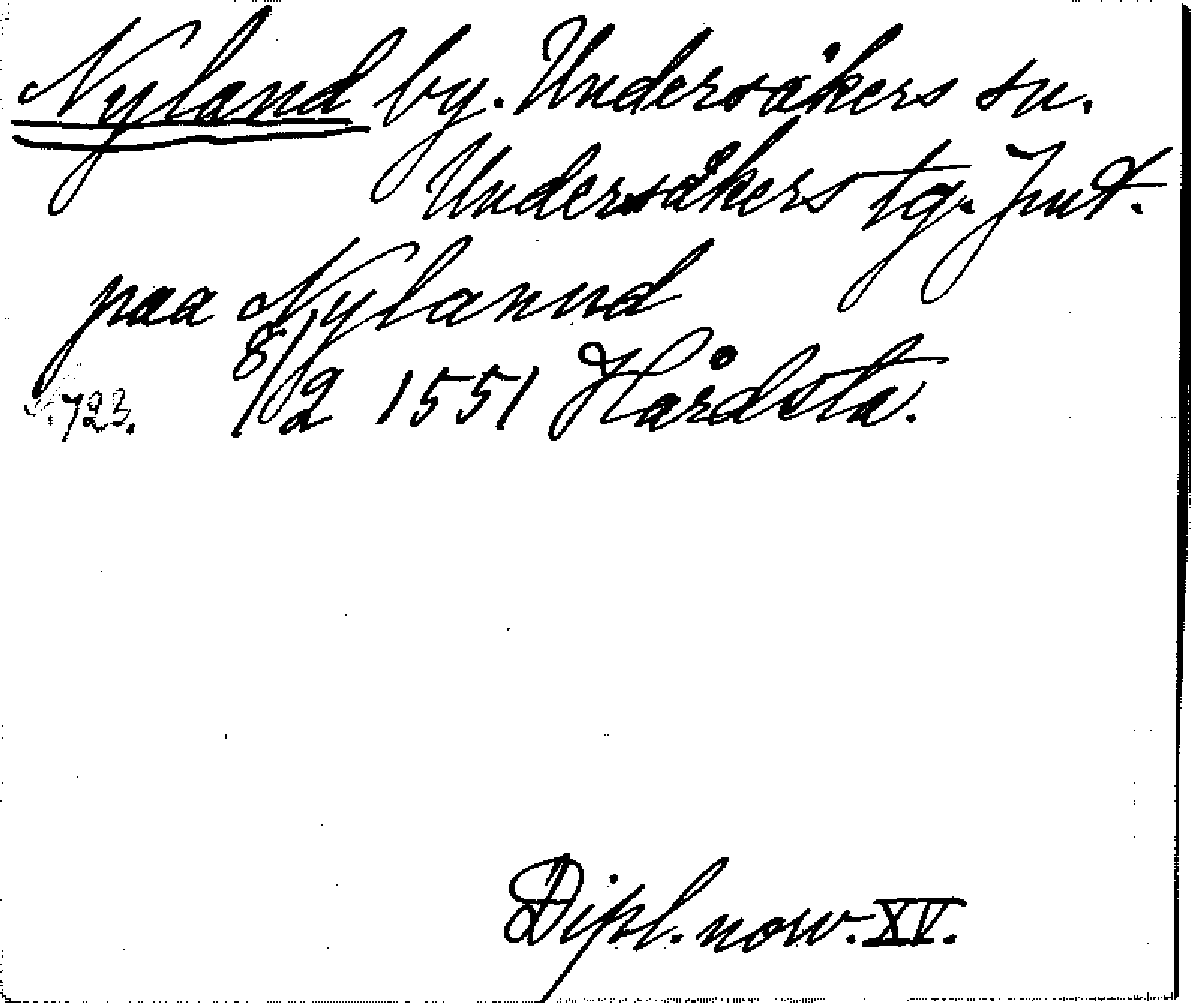 Nyland by. Undersåkers sn.
Undersåkers tg. Jmt.
paa Nylannd
N. 723. 8/2 1551 Hårdsta.
Dipl. norv. XV.